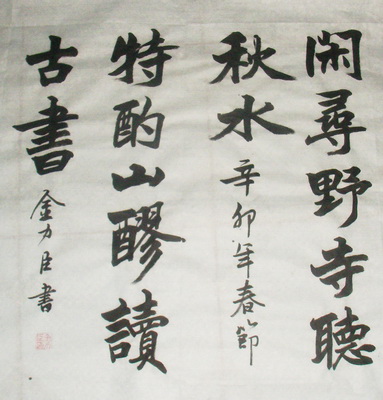 閑尋野寺聽
秋水 辛卯年春節
特酌山醪讀
古書 金力臣書